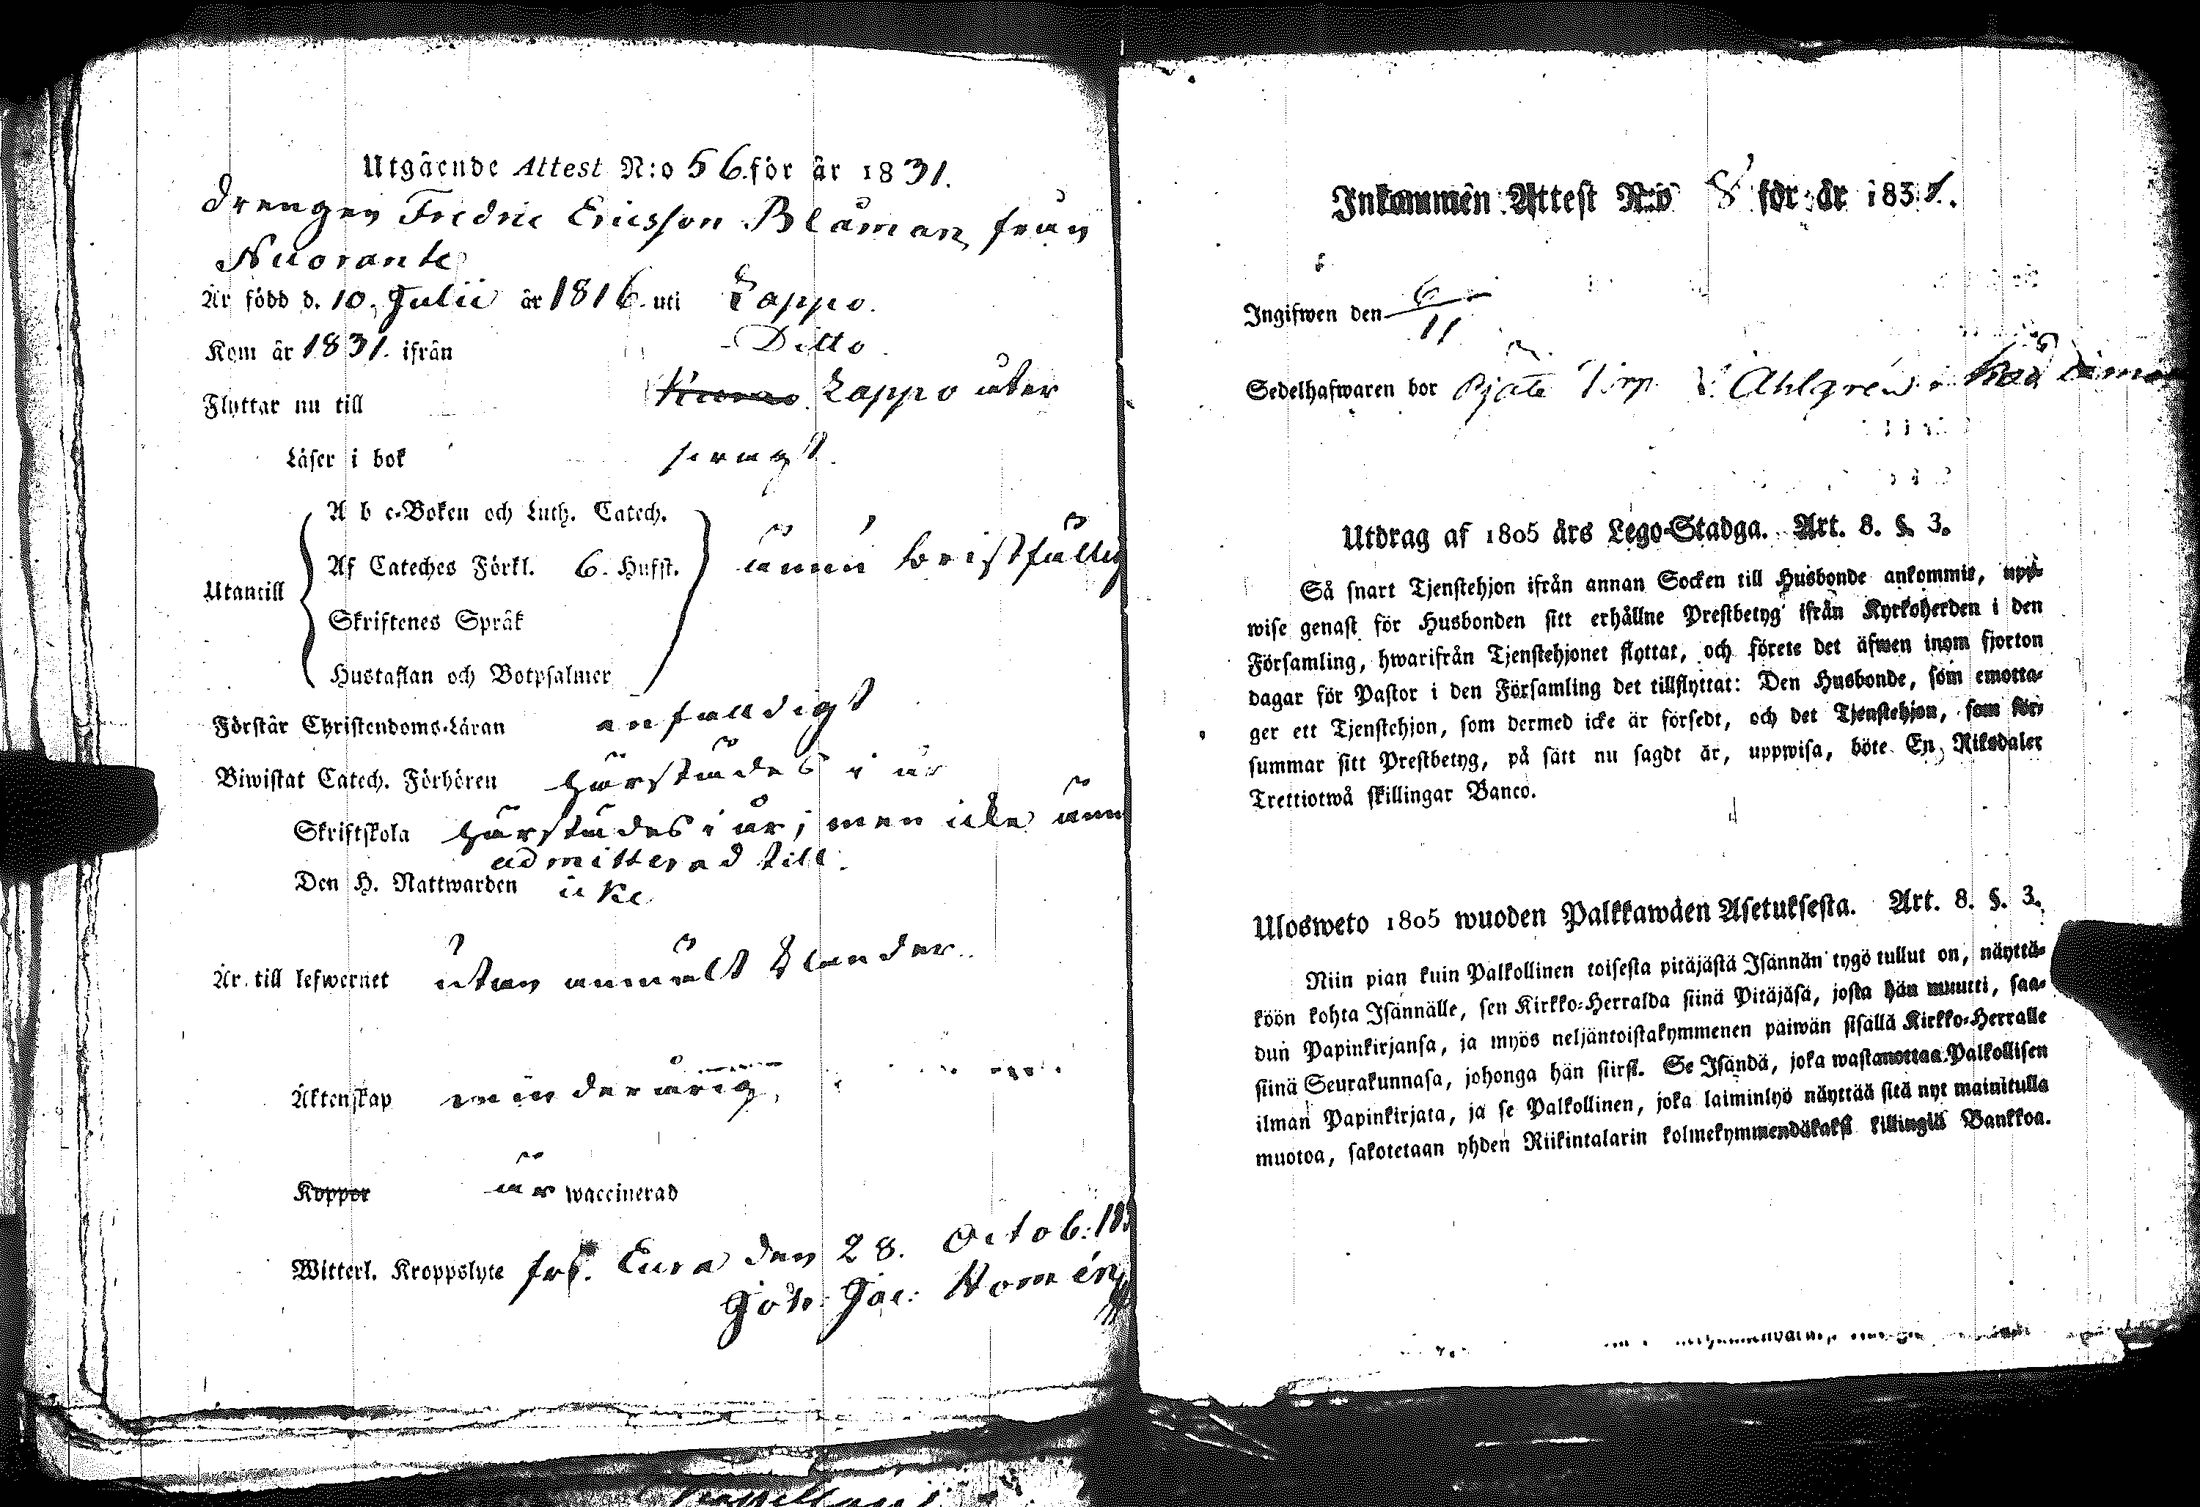 Utgående Attest N:o 56. för år 1831.
Drengen Fredric Ericsson Blåman från
Nuorante
Är född d. 10. Julii år 1816. uti Lappo.
Kom år 1831. ifrån Ditto
Flyttar nu till Lappo åter
Läser i bok svagt.
A b c-Boken och Luth. Catech.
Af Cateches Förkl. 6. Hufst. ännu bristfällig
Utantill
Skriftenes Språk
Hustaflan och Botpsalmer
Förstår Christendoms-Läran enfalldigt
Biwistat Catech. Förhören härstädes i år
Skriftskola härstädes i år; men icke ännu
admitterad till.
Den H. Nattwarden icke
Är till lefwernet utan anmält klander.
Äktenskap minderårig,
Koppor är waccinerad
Witterl. Kroppslyte fri. Eura den 28. Octob: 183
Joh: Jac: Nomén
Inkommen Attest N:o 8 för år 1831.
Ingifwen den 6/11
Sedelhafwaren bor Torp Ahlgrén
Utdrag af 1805 års Lego-Stadga. Art. 8. §. 3.
Så snart Tjenstehjon ifrån annan Socken till Husbonde ankommit, upp-
wise genast för Husbonden sitt erhållne Prestbetyg ifrån Kyrkoherden i den
Församling, hwarifrån Tjenstehjonet flyttat, och förete det äfwen inom fjorton
dagar för Pastor i den Församling det tillflyttat: Den Husbonde, som emotta-
ger ett Tjenstehjon, som dermed icke är försedt, och det Tjenstehjon, som för-
summar sitt Prestbetyg, på sätt nu sagdt är, uppwisa, böte En Riksdaler
Trettiotwå skillingar Banco.
Ulosweto 1805 wuoden Palkkawäen Asetuksesta. Art. 8. §. 3.
Niin pian kuin Palkollinen toisesta pitäjästä Isännän tygö tullut on, näyttä-
köön kohta Isännälle, sen Kirkko-Herralda siinä Pitäjäsä, josta hän muutti, saa-
dun Papinkirjansa, ja myös neljäntoistakymmenen päiwän sisällä Kirkko-Herralle
siinä Seurakunnasa, johonga hän siirst. Se Isändä, joka wastanottaa Palkollisen
ilman Papinkirjata, ja se Palkollinen, joka laiminlyö näyttää sitä nyt mainitulla
muotoa, sakotetaan yhden Riikintalarin kolmekymmendäkaksi killingiä Bankkoa.